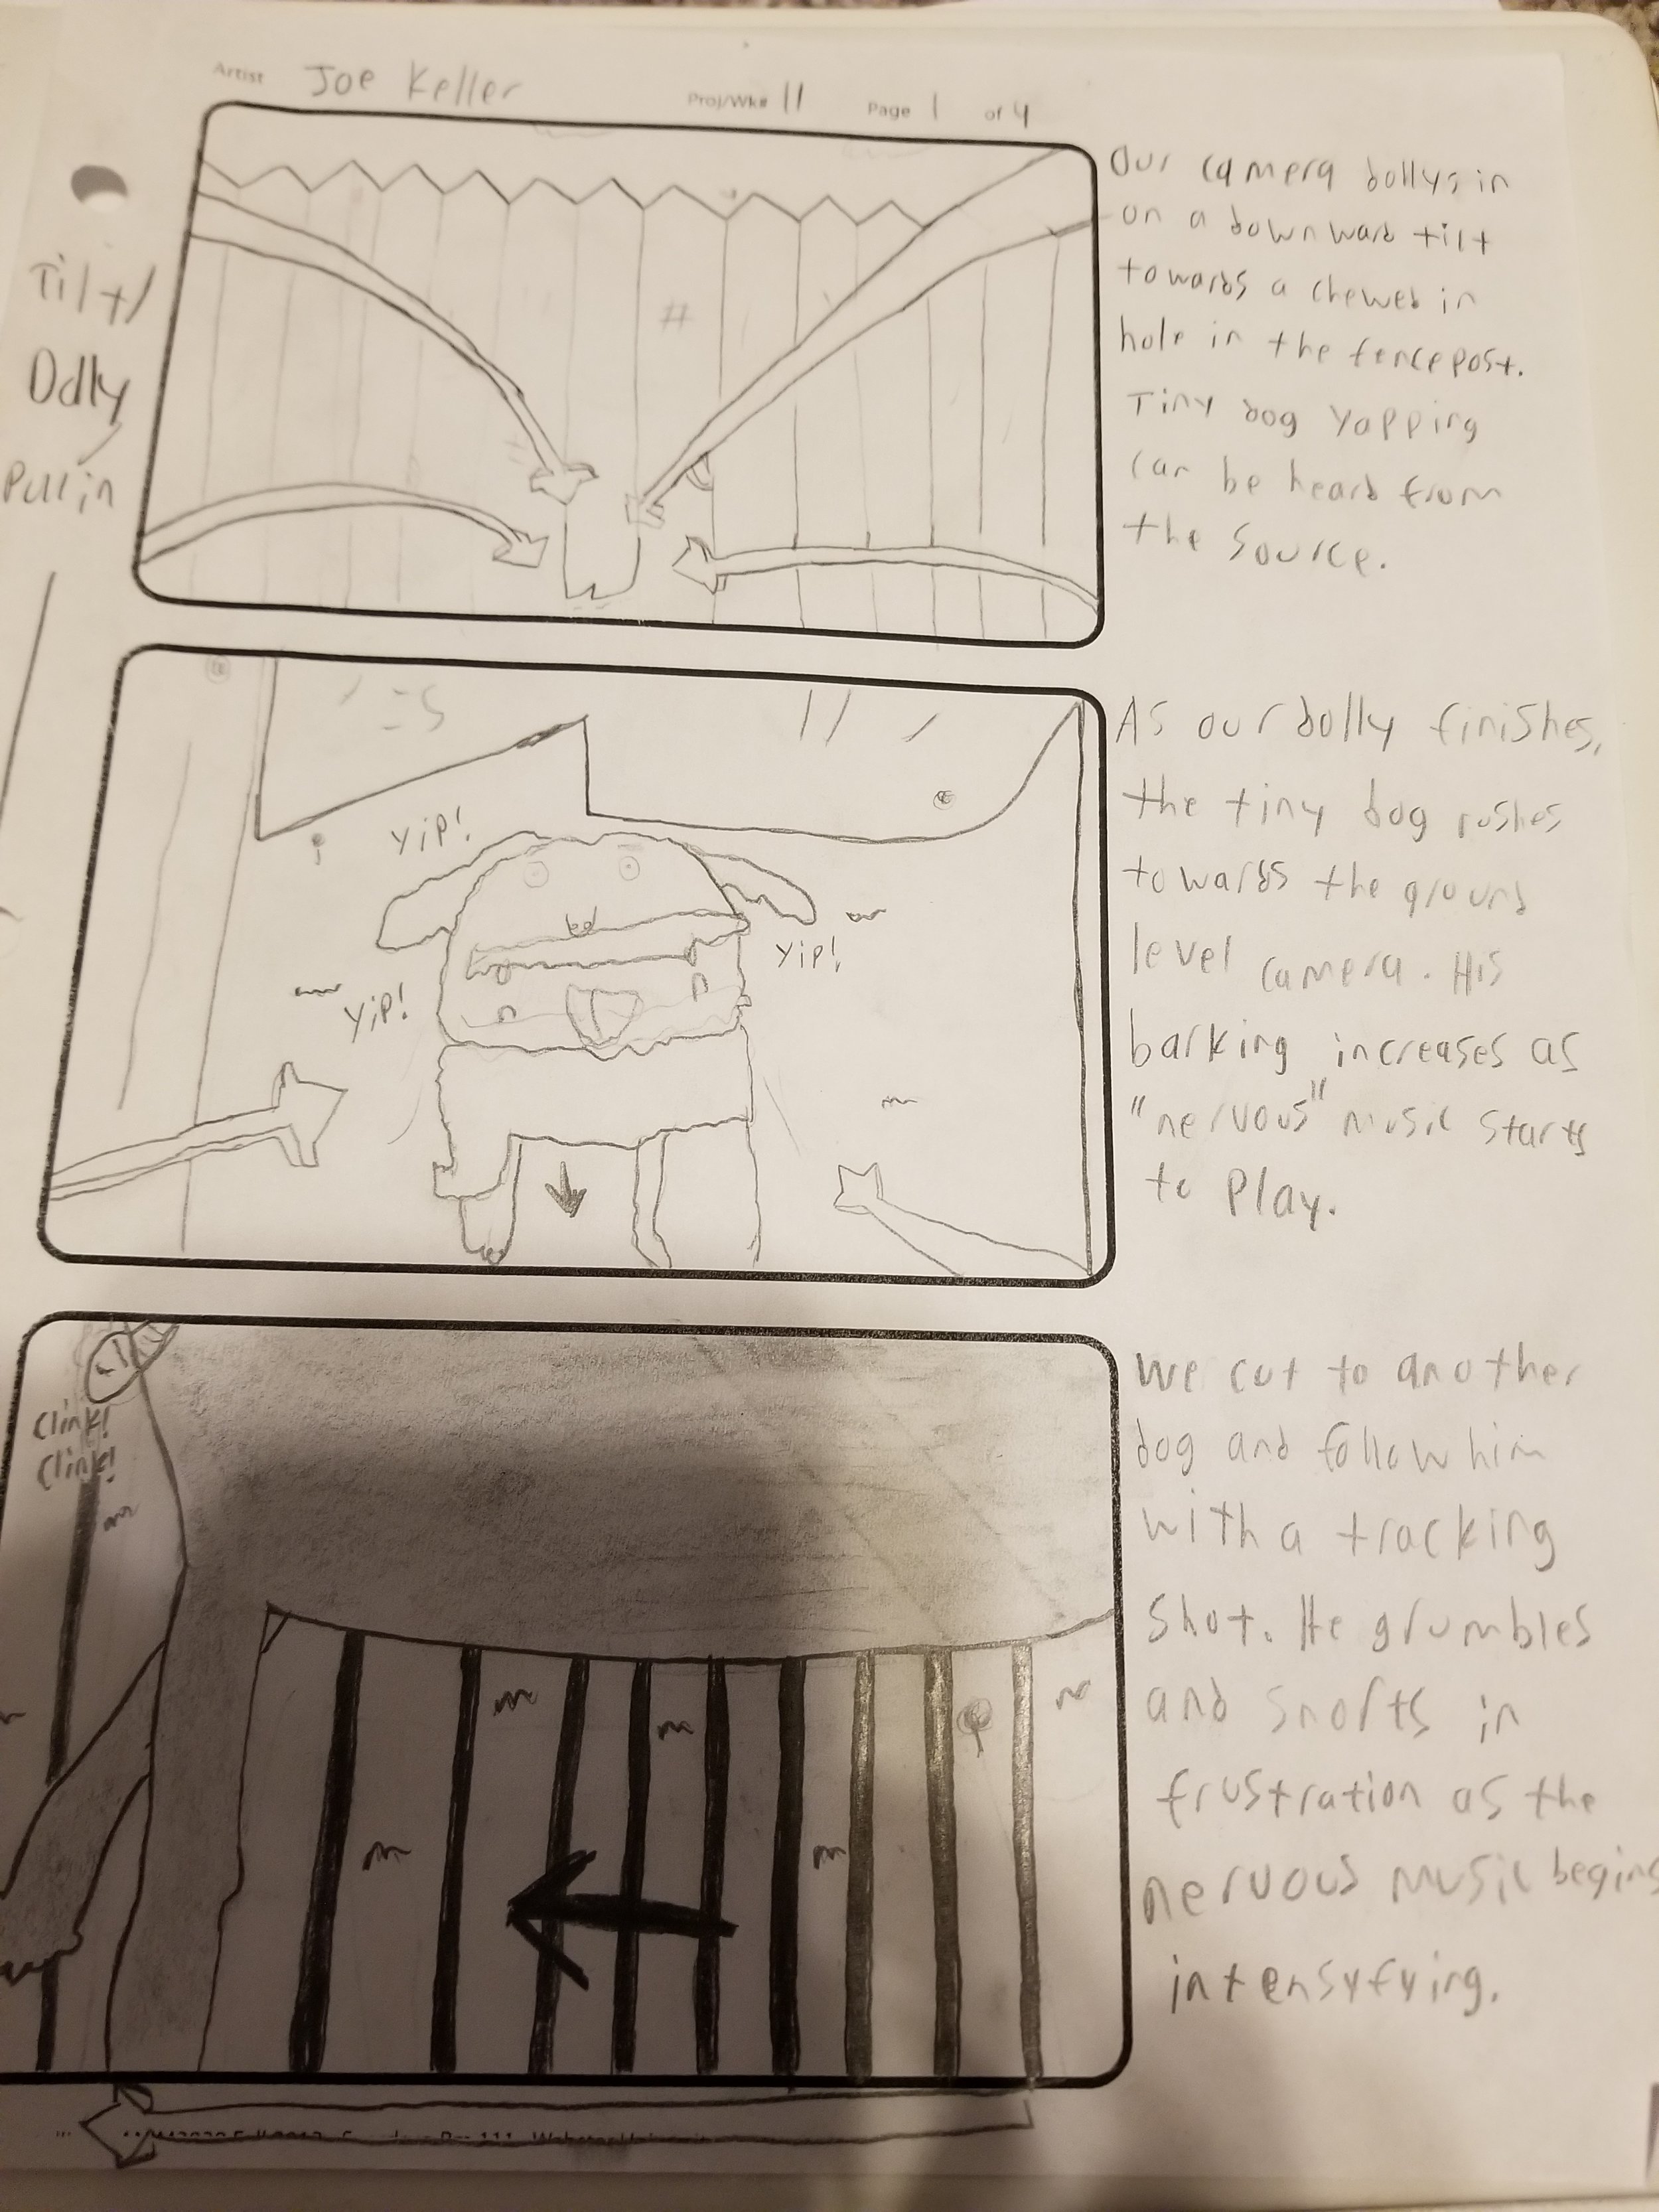 Artist Joe Keller Proj/Wk# 11 Page 1 of 4
Tilt/
Dolly
Pull in
Our camera dollys in
on a downward tilt
towards a chewed in
hole in the fencepost.
Tiny dog Yapping
can be heard from
the source.
#
As our dolly finishes,
the tiny dog rushes
towards the ground
level camera. His
barking increases as
"nervous" music starts
to Play.
Yip!
Yip!
Yip!
We cut to another
dog and follow him
with a tracking
shot. He grumbles
and snorts in
frustration as the
nervous music begins
intensyfying.
Clink!
Clink!